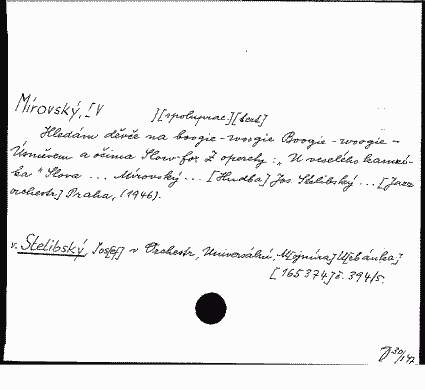 Mírovský, IV ][spoluprac][text]
Hledám děvče na boogie-woogie Boogie-woogie -
Úsměvem a očima Slow-fox Z operety: „U veselého
ka" Slova ... Mírovský ... [Hudba] Jos. Stelibský ... [Jazz
orchestr] Praha, (1946).
v. Stelibský, Jos[ef] v Orchestr, Universální, M[ojmíra] U[rbánka]
[165374] č. 394/5.
30/147